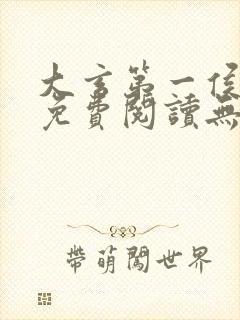 大言第一侯
免費閱讀無
帶萌闖世界